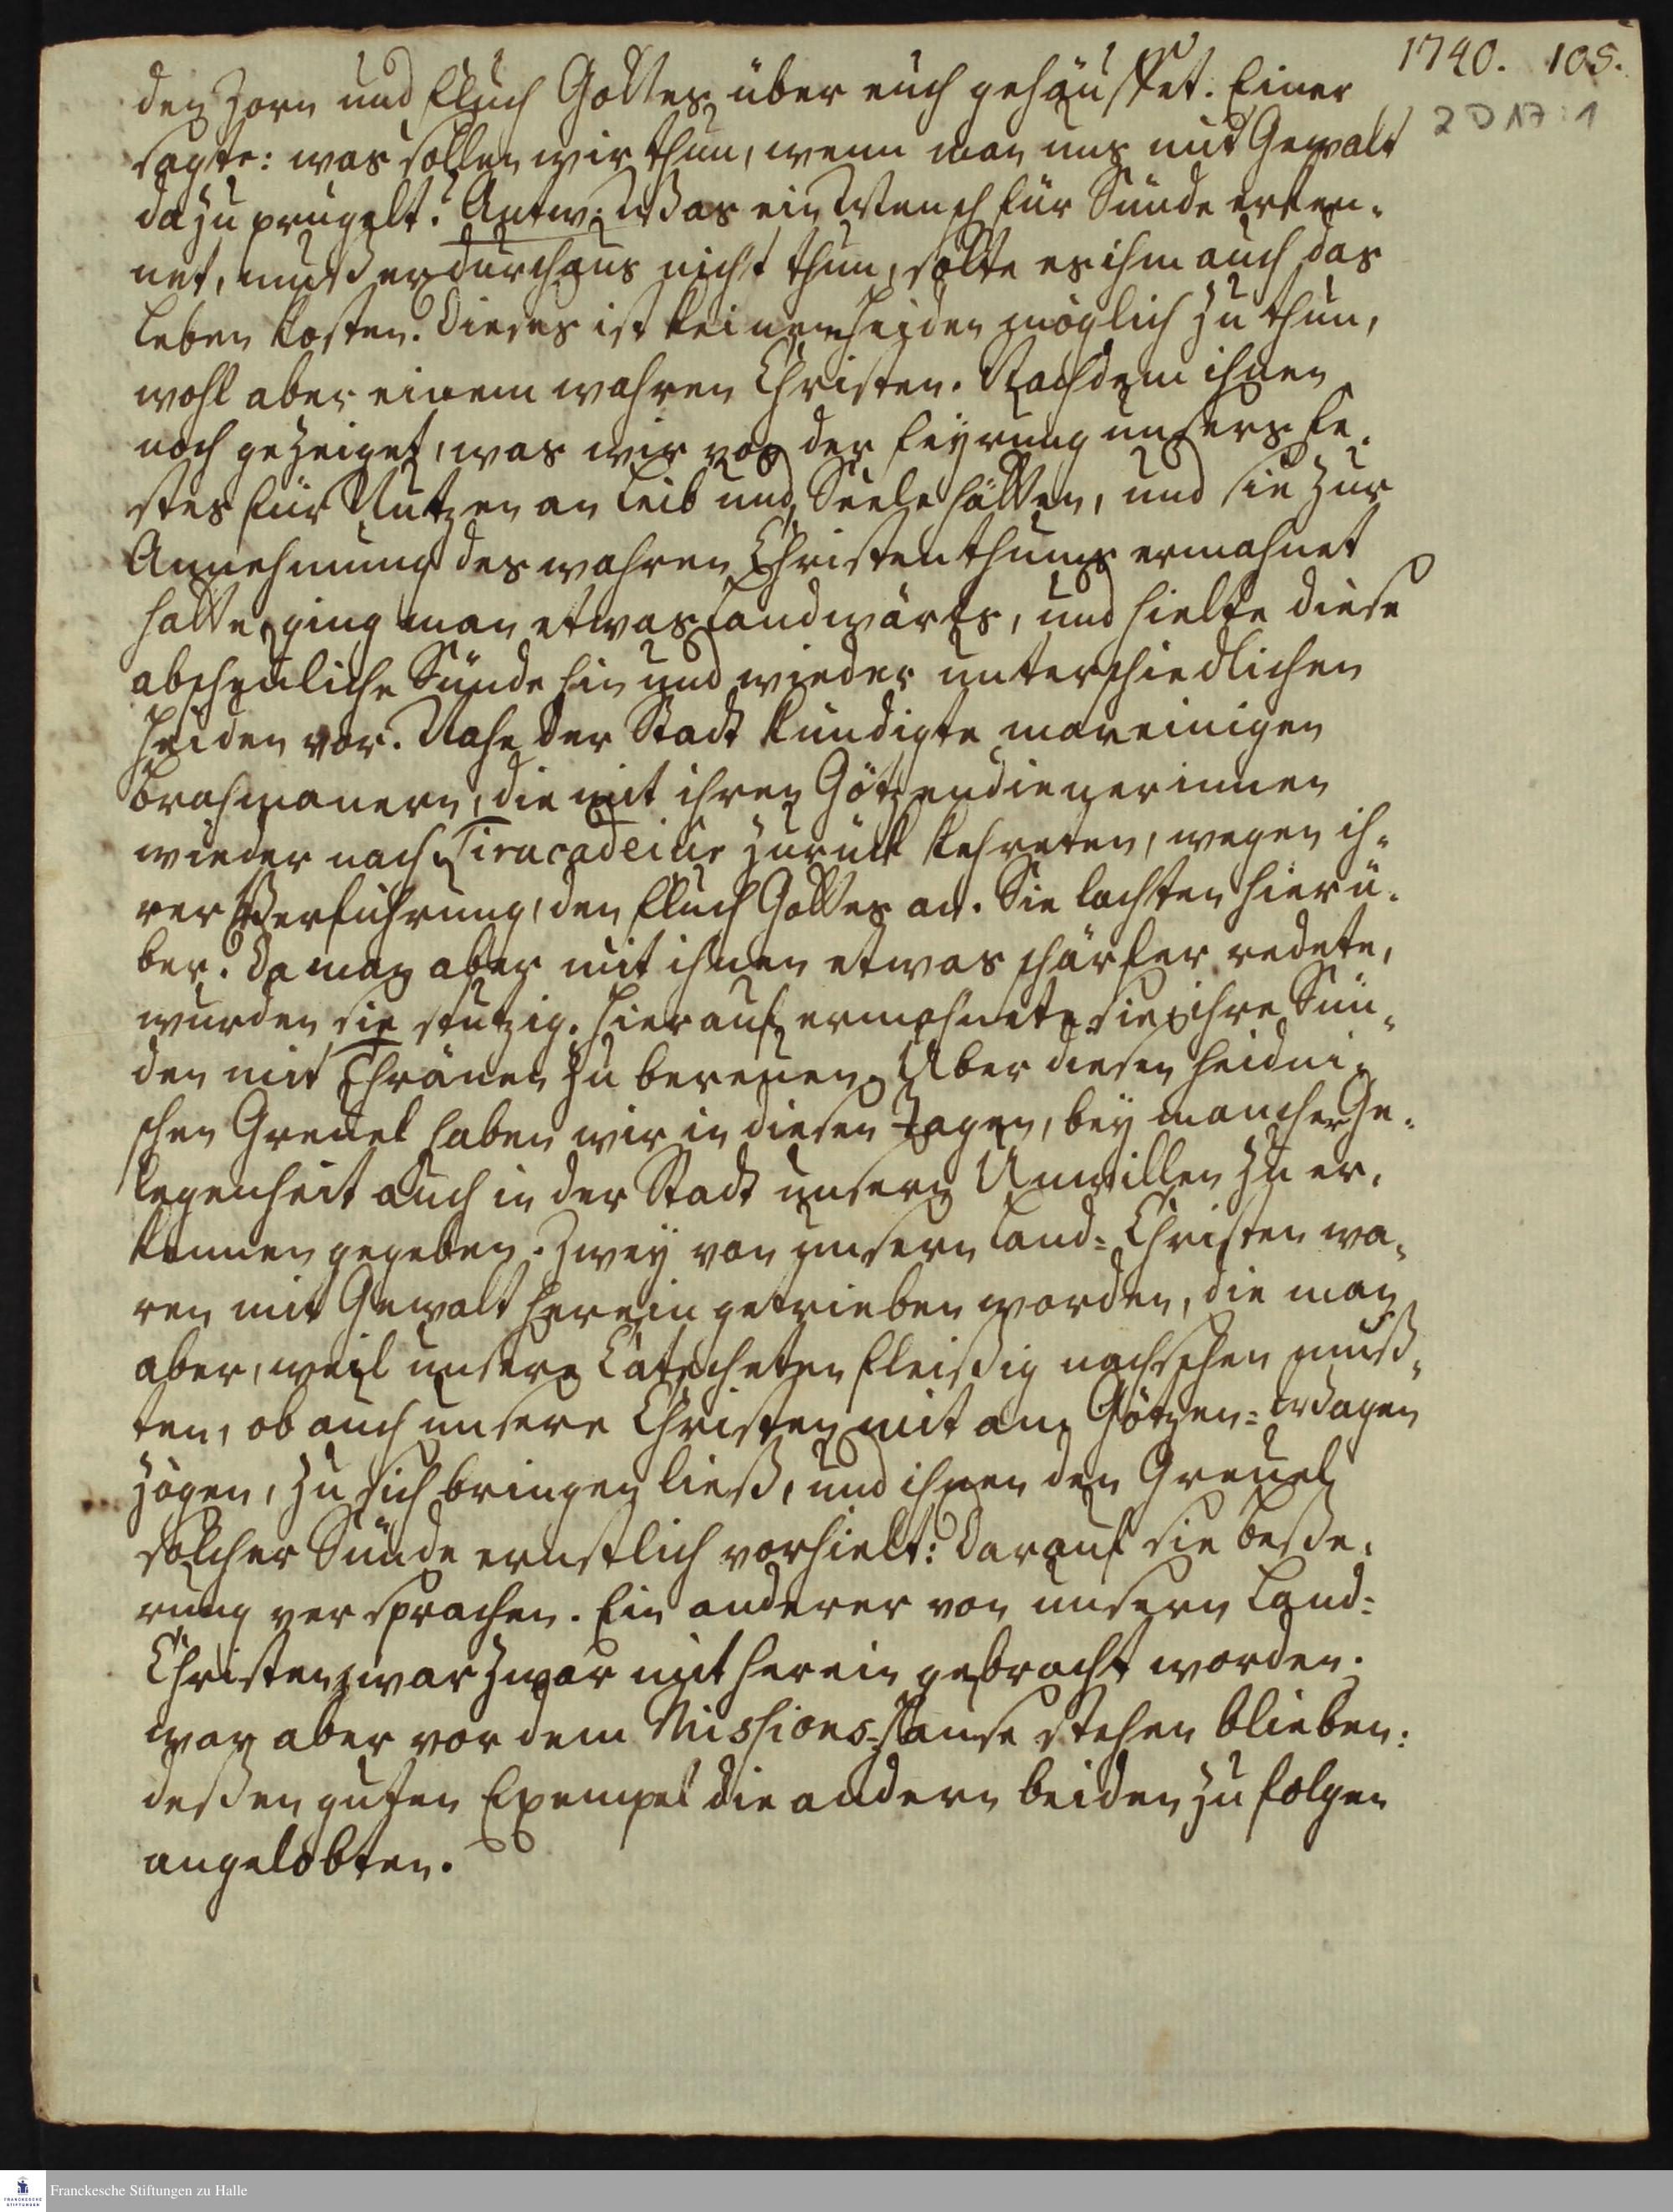 1740. 105.
2 D 17 : 1
den Zorn und Fluch Gottes über euch gehäuffet. Einer
sagte: was sollen wir thun, wenn man uns mit Gewalt
dazu prügelt? Antw. Was ein Mensch für Sünde erken-
net, muß er durchaus nicht thun, solte es ihm auch das
Leben kosten. Dieses ist keinem Heiden möglich zu thun,
wohl aber einem wahren Christen. Nachdem ihnen
noch gezeiget, was wir von der Feyrung unsers Fe-
stes für Nutzen an Leib und Seele hätten, und sie zur
Annehmung des wahren Christenthums ermahnet
hatte, ging man etwas landwärts, und hielte diese
abscheuliche Sünde hin und wieder unterschiedlichen
Heiden vor. Nahe der Stadt kündigte man einigen
Brahmanern, die mit ihren Götzendienerinnen
wieder nach Tirucadeiur zurück kehreten, wegen ih-
rer Verführung, den Fluch Gottes an. Sie lachten hierü-
ber. Da man aber mit ihnen etwas schärfer redete,
wurden sie stutzig. Hierauf ermahnete sie, ihre Sün-
den mit Thränen zu bereuen. Über diesen heidni-
schen Greuel haben wir in diesen Tagen, bey mancher Ge-
legenheit auch in der Stadt unsern Unwillen zu er-
kennen gegeben. Zwey von unsern Land-Christen wa-
ren mit Gewalt herein getrieben worden, die man
aber, weil unsere Catecheten fleißig nachsehen muß-
ten, ob auch unsere Christen mit am Götzen-Wagen
zögen, zu sich bringen ließ, und ihnen den Greuel
solcher Sünde ernstlich vorhielt: darauf sie Beße-
rung versprachen. Ein anderer von unsern Land-
Christen war zwar mit herein gebracht worden.
war aber vor dem Missions-Hause stehen blieben:
deßen guten Exempel die andern beiden zu folgen
angelobten.
Franckesche Stiftungen zu Halle
FRANCKESCHE STIFTUNGEN